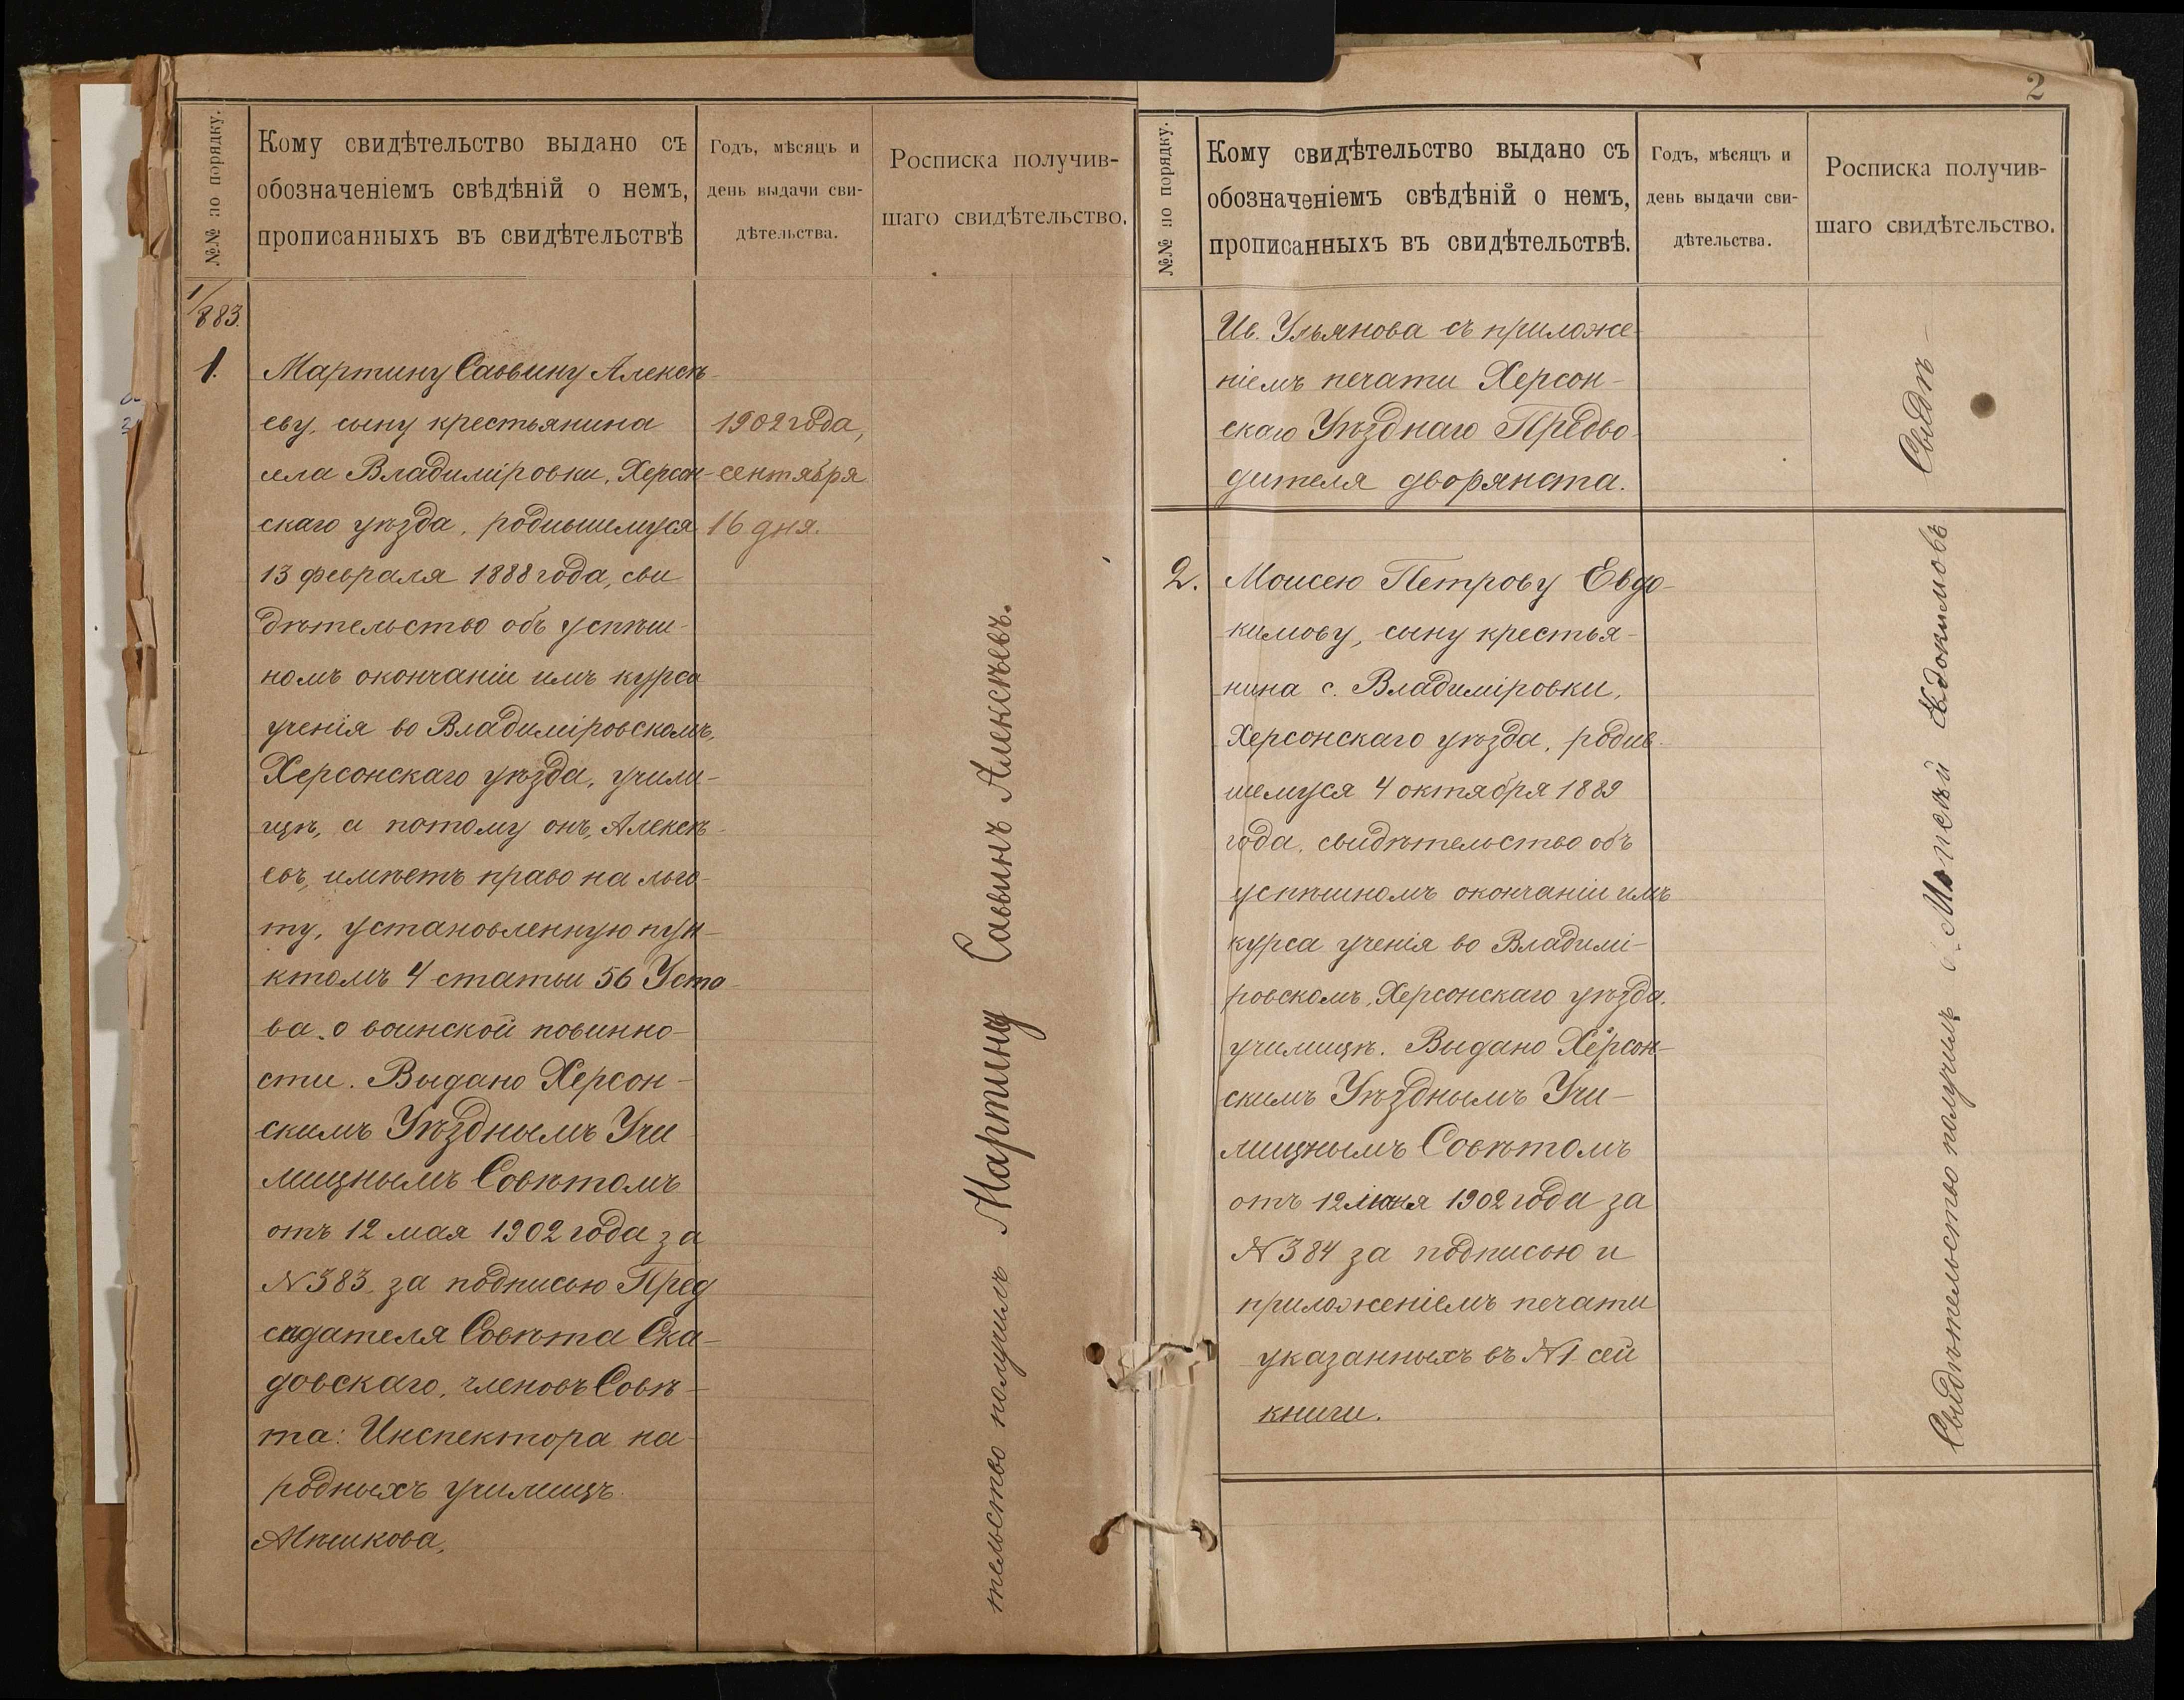 №№ по порядку.
Кому свидѣтельство выдано съ
обозначеніемъ свѣдѣній о немъ,
прописанныхъ въ свидѣтельствѣ
Годъ, мѣсяцъ и
день выдачи сви-
дѣтельства.
Росписка получив-
шаго свидѣтельство.
1/883.
1.
Мартину Саввину Алексѣ-
еву, сыну крестьянина
села Владиміровки, Херсон-
скаго уѣзда, родившемуся
13 февраля 1888 года, сви
дѣтельство объ успѣш-
номъ окончаніи имъ курса
ученія во Владиміровскомъ,
Херсонскаго уѣзда, учили-
щѣ, а потому онъ, Алексѣ-
евъ, имѣетъ право на льго-
ту, установленную пун-
ктомъ 4 статьи 56 Уста-
ва о воинской повинно-
сти. Выдано Херсон-
скимъ Уѣзднымъ Учи-
лищнымъ Совѣтомъ
отъ 12 мая 1902 года за
№ 383 за подписью Пред
сѣдателя Совѣта Ска-
довскаго, членовъ Совѣ-
та: Инспектора на-
родныхъ училищъ
Мѣшкова,
1902 года,
сентября
16 дня.
тельство получилъ Мартину Саввинъ Алексѣевъ.
2
№№ по порядку.
Кому свидѣтельство выдано съ
обозначеніемъ свѣдѣній о немъ,
прописанныхъ въ свидѣтельствѣ.
Годъ, мѣсяцъ и
день выдачи сви-
дѣтельства.
Росписка получив-
шаго свидѣтельство.
Ив. Ульянова съ приложе-
ніемъ печати Херсон-
скаго Уѣзднаго Предво-
дителя дворянста.
Свидѣ-
2.
Моисею Петрову Евдо-
кимову, сыну крестья-
нина с. Владиміровки,
Херсонскаго уѣзда, родив-
шемуся 4 октября 1889
года, свидѣтельство объ
успѣшномъ окончаніи имъ
курса ученія во Владимі-
ровскомъ, Херсонскаго уѣзда,
училищѣ. Выдано Херсон-
скимъ Уѣзднымъ Учи-
лищнымъ Совѣтомъ
отъ 12 1902 года за
№ 384 за подписью и
приложеніемъ печати
указанныхъ въ № 1 сей
книги.
Свидѣтельство получилъ Моисей Евдокимовъ